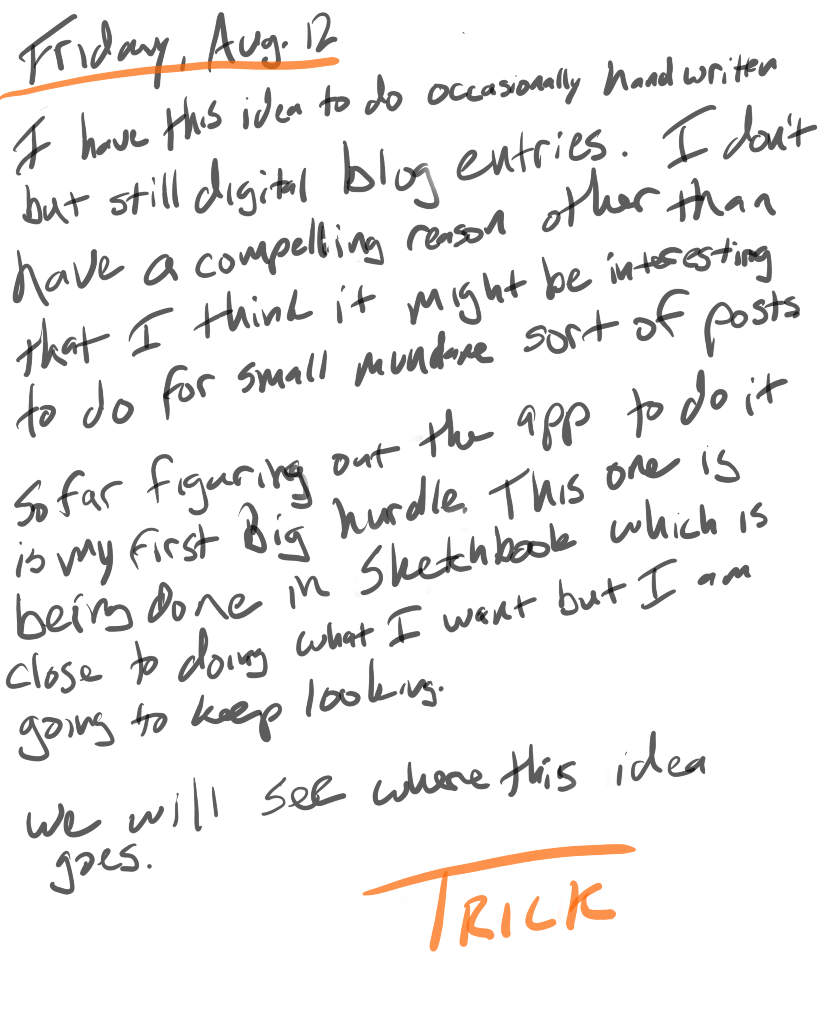 Friday, Aug. 12
I have this idea to do occasionally handwriten
but still digital blog entries. I don't
have a compelling reason other than
that I think it might be interesting
to do for small mundane sort of posts
So far figuring out the app to do it
is my first big hurdle. This one is
being done in Sketchbook which is
close to doing what I want but I am
going to keep looking.
We will see where this idea
goes.
TRICK